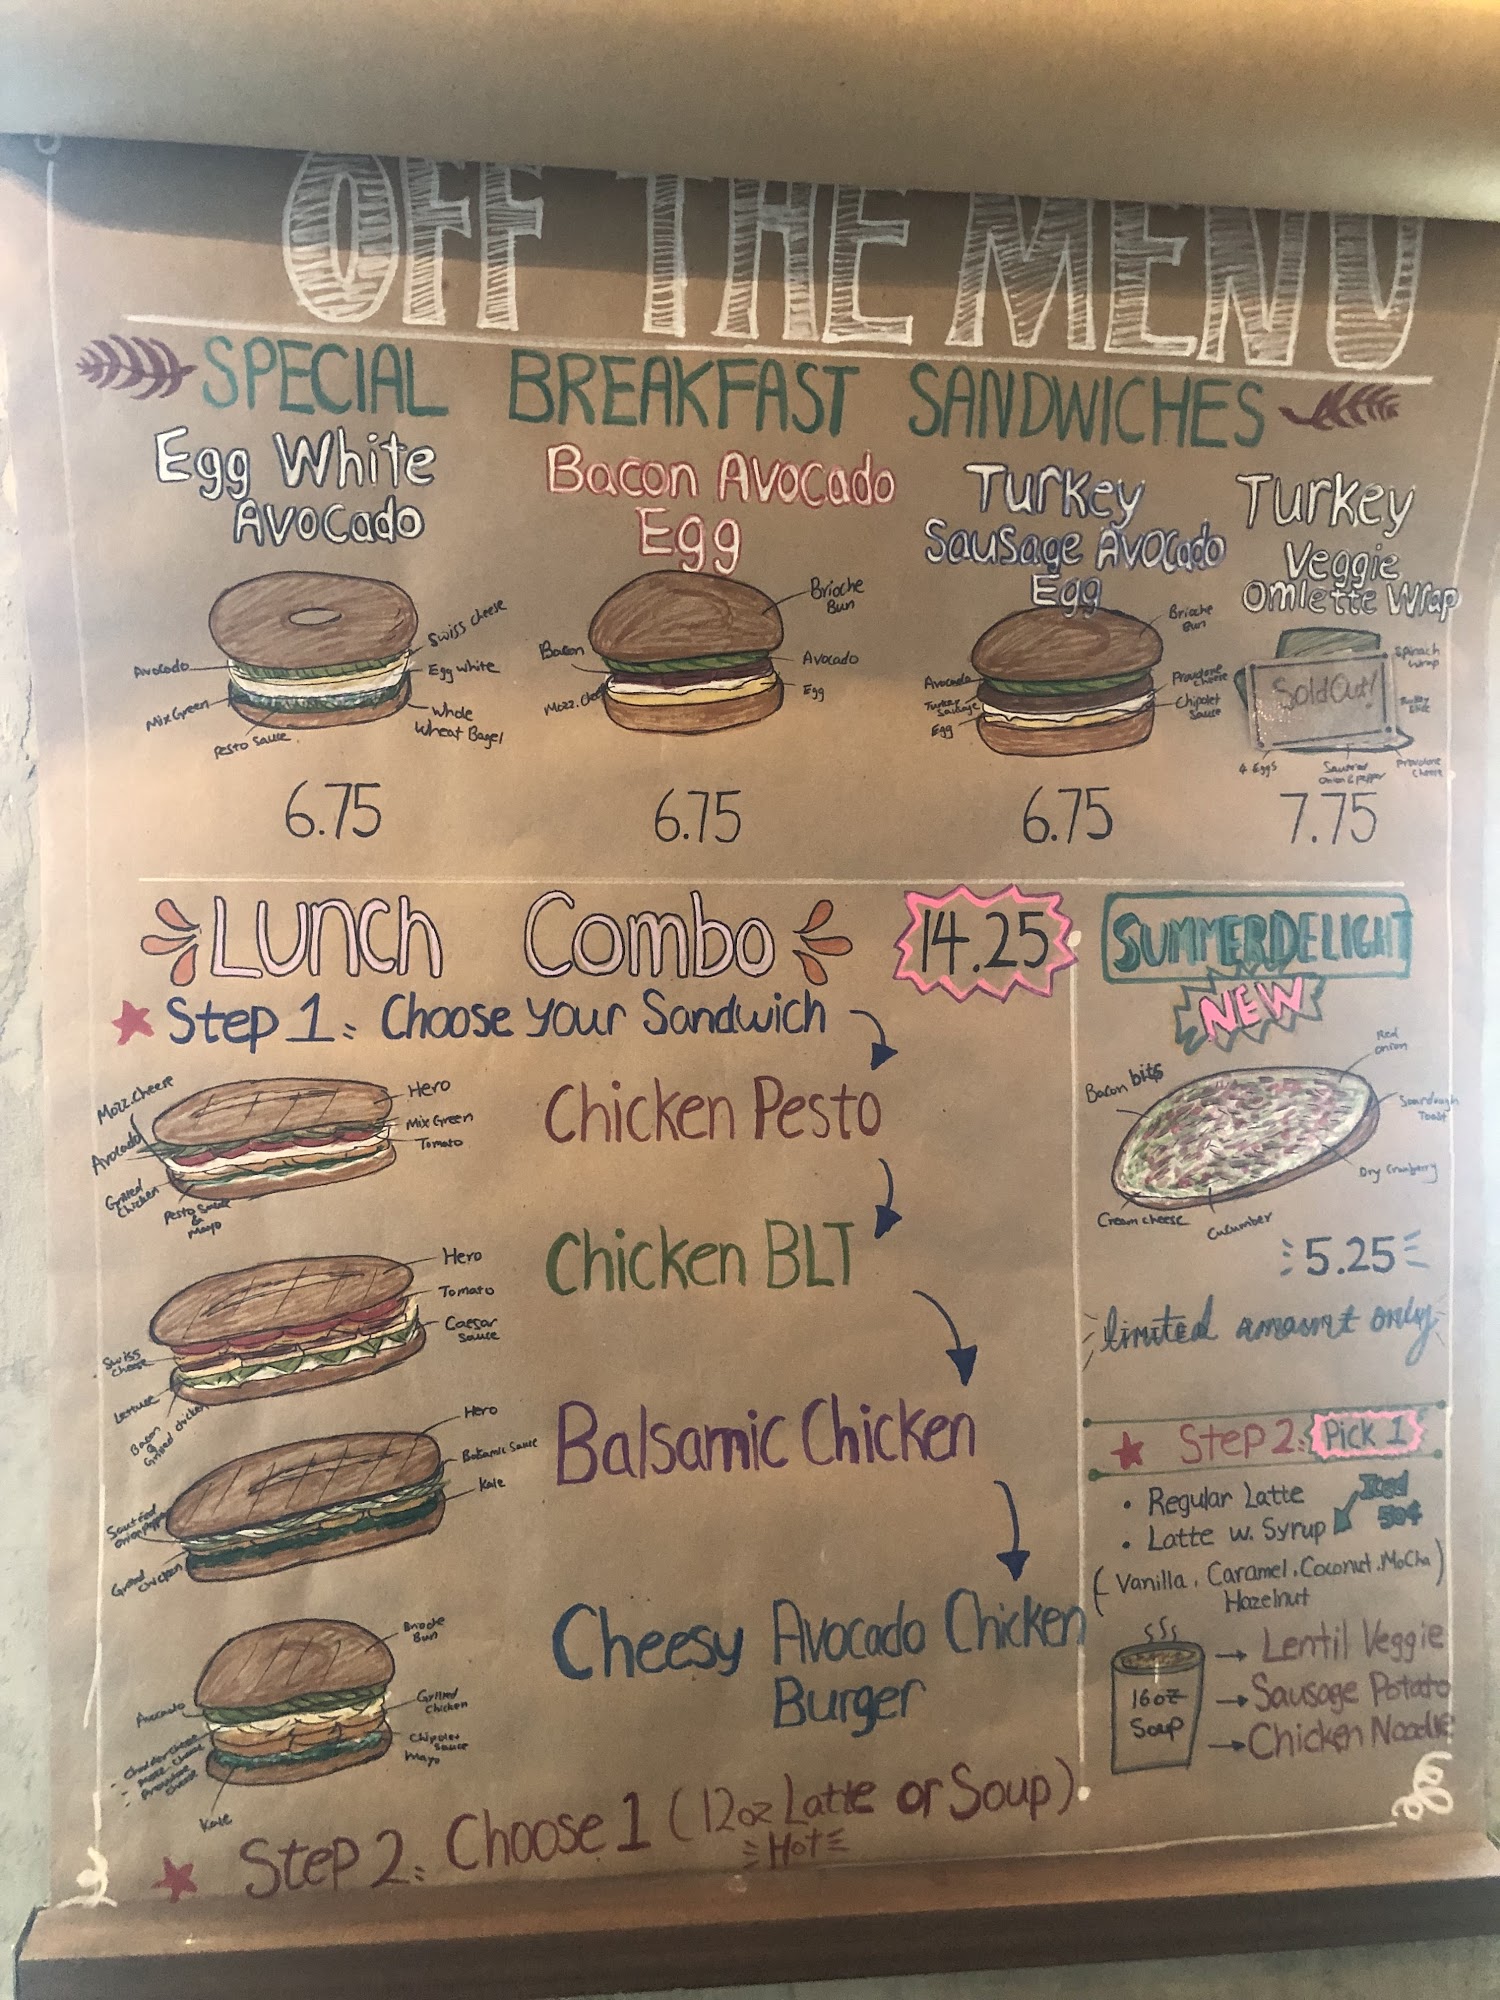 OFF THE MENU
SPECIAL BREAKFAST SANDWICHES
Egg White
Avocado
Swiss cheese
Avocado
Egg White
Mix Green
Whole
Wheat Bagel
Pesto Sauce
6.75
Bacon Avocado
Egg
Brioche
Bun
Bacon
Avocado
Mozz. Cheese
Egg
6.75
Turkey
Sausage Avocado
Egg
Brioche
Bun
Avocado
Provolone
Cheese
Turkey
Sausage
Chipolet
Sauce
Egg
6.75
Turkey
Veggie
Omlette Wrap
Spinach
Wrap
Sold Out!
4 Eggs
Onion & Pepper
Provolone
Cheese
7.75
Lunch Combo
14.25
Step 1: Choose Your Sandwich
Mozz. Cheese
Hero
Avocado
Mix Green
Tomato
Grilled
Chicken
Pesto Sauce
&
Mayo
Chicken Pesto
Hero
Tomato
Caesar
Sauce
Swiss
Cheese
Lettuce
Bacon
&
Grilled chicken
Chicken BLT
Hero
Balsamic Sauce
Kale
Grilled
Chicken
Balsamic Chicken
Brioche
Bun
Avocado
Grilled
Chicken
Chipolet
Sauce
Mayo
Mozz. Cheese
Provolone
Cheese
Kale
Cheesy Avocado Chicken
Burger
Step 2: Choose 1 (12oz Latte or Soup)
Hot
SUMMER DELIGHT
NEW
Red
onion
Bacon bits
Sourdough
Toast
Dry Cranberry
Cream cheese
Cucumber
5.25
limited amount only
Step 2: Pick 1
• Regular Latte
Iced
50¢
• Latte w. Syrup
(Vanilla, Caramel, Coconut, MoCha
Hazelnut)
16oz
Soup
Lentil Veggie
Sausage Potato
Chicken Noodle